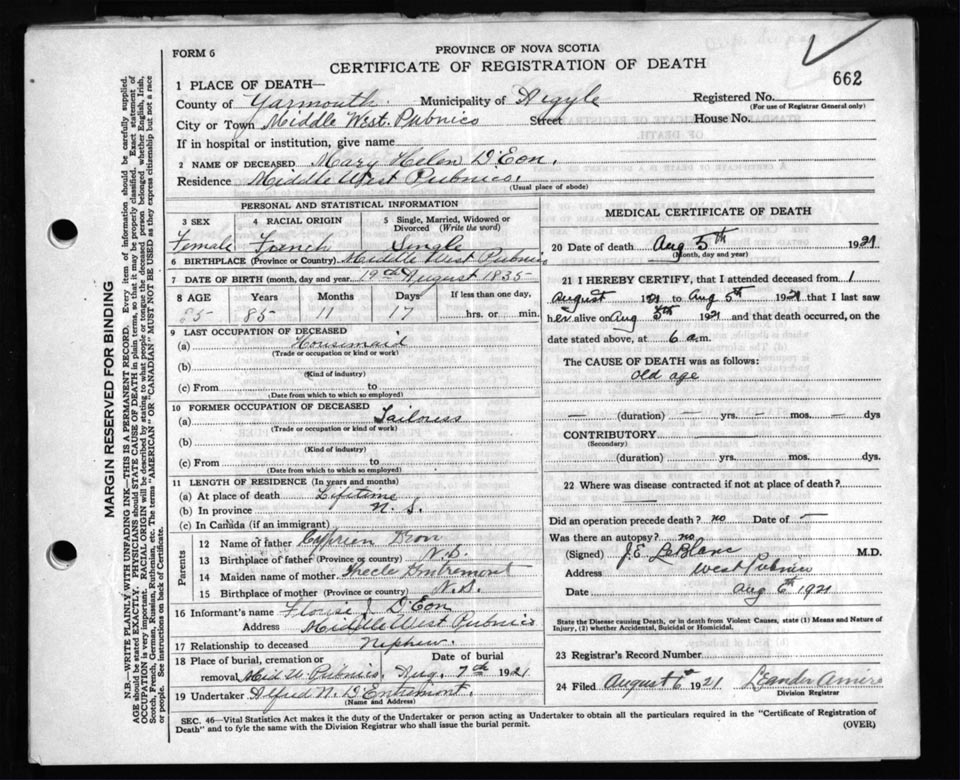 FORM 6
PROVINCE OF NOVA SCOTIA
CERTIFICATE OF REGISTRATION OF DEATH
662
1 PLACE OF DEATH—
County of Yarmouth. Municipality of Argyle Registered No.
(For use of Registrar General only)
City or Town Middle West Pubnico Street House No.
If in hospital or institution, give name
2 NAME OF DECEASED Mary Helen D'Eon.
Residence Middle West Pubnico.
(Usual place of abode)
PERSONAL AND STATISTICAL INFORMATION
3 SEX 4 RACIAL ORIGIN 5 Single, Married, Widowed or Divorced (Write the word)
Female French Single
6 BIRTHPLACE (Province or Country) Middle West Pubnico
7 DATE OF BIRTH (month, day and year) 19th August 1835
8 AGE Years Months Days If less than one day,
85 85 11 17 hrs. or min.
9 LAST OCCUPATION OF DECEASED
(a) Housemaid
(Trade or occupation or kind or work)
(b)
(Kind of industry)
(c) From to
(Date from which to which so employed)
10 FORMER OCCUPATION OF DECEASED
(a) Tailoress
(Trade or occupation or kind of work)
(b)
(Kind of industry)
(c) From to
(Date from which to which so employed)
11 LENGTH OF RESIDENCE (In years and months)
(a) At place of death Lifetime
(b) In province N. S.
(c) In Canada (if an immigrant)
Parents
12 Name of father Cyprien Deon
13 Birthplace of father (Province or country) N.S.
14 Maiden name of mother Thecle Dentremont
15 Birthplace of mother (Province or country) N.S.
16 Informant's name J. D'Eon
Address Middle West Pubnico
17 Relationship to deceased Nephew.
18 Place of burial, cremation or removal Mid W Pubnico Date of burial Aug. 7th 1921
19 Undertaker Alfred N. D'Entremont.
(Name and Address)
MEDICAL CERTIFICATE OF DEATH
20 Date of death Aug 5th 1921
(Month, day and year)
21 I HEREBY CERTIFY, that I attended deceased from 1
August 1921 to Aug 5th 1921 that I last saw
her alive on Aug 5th 1921 and that death occurred, on the
date stated above, at 6 a.m.
The CAUSE OF DEATH was as follows:
Old age
— (duration) — yrs. — mos. — dys
CONTRIBUTORY
(Secondary)
(duration) yrs. mos. dys.
22 Where was disease contracted if not at place of death?
Did an operation precede death? no Date of —
Was there an autopsy? no
(Signed) J.E. LeBlanc M.D.
Address West Pubnico
Date Aug 6th 1921
State the Disease causing Death, or in death from Violent Causes, state (1) Means and Nature of
Injury, (2) whether Accidental, Suicidal or Homicidal.
23 Registrar's Record Number
24 Filed August 6th 1921 Leander Amiro
Division Registrar
SEC. 46—Vital Statistics Act makes it the duty of the Undertaker or person acting as Undertaker to obtain all the particulars required in the "Certificate of Registration of
Death" and to fyle the same with the Division Registrar who shall issue the burial permit.
(OVER)
MARGIN RESERVED FOR BINDING
N.B.—WRITE PLAINLY WITH UNFADING INK—THIS IS A PERMANENT RECORD. Every item of information should be carefully supplied.
AGE should be stated EXACTLY. PHYSICIANS should STATE CAUSE OF DEATH in plain terms, so that it may be properly classified. Exact statement of
OCCUPATION is very important. RACIAL ORIGIN will be described by stating to what people or tongue the deceased person belonged whether English, Irish,
Scotch, French, German, Russian, Ruthenian, etc. The terms "AMERICAN" OR "CANADIAN" MUST NOT BE USED as they express citizenship but not a race
or people. See instructions on back of Certificate.